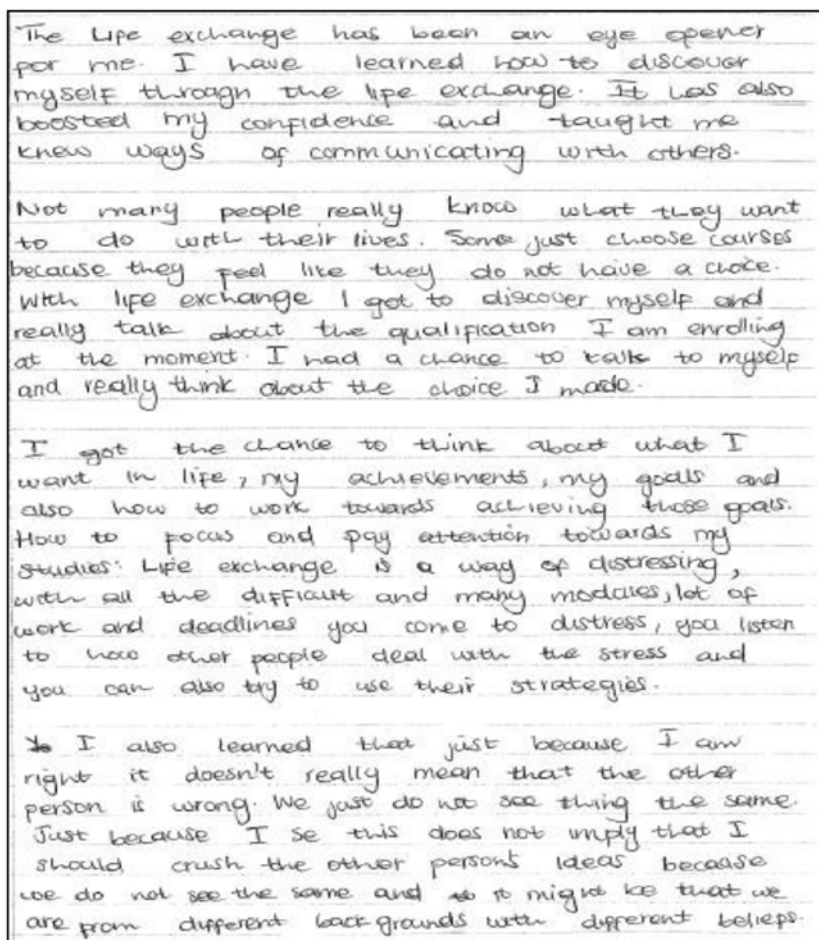 The Life exchange has been an eye opener
for me. I have learned how to discover
myself through the life exchange. It has also
boosted my confidence and taught me
knew ways of communicating with others.
Not many people really know what they want
to do with their lives. Some just choose courses
because they feel like they do not have a choice.
With life exchange I got to discover myself and
really talk about the qualification I am enrolling
at the moment. I had a chance to talk to myself
and really think about the choice I made.
I got the chance to think about what I
want in life, my achievements, my goals and
also how to work towards achieving those goals.
How to focus and pay attention towards my
studies: Life exchange is a way of distressing,
with all the difficult and many modules, lot of
work and deadlines you come to distress, you listen
to how other people deal with the stress and
you can also try to use their strategies.
I also learned that just because I am
right it doesn't really mean that the other
person is wrong. We just do not see thing the same.
Just because I se this does not imply that I
should crush the other person's ideas because
we do not see the same and it might be that we
are from different backgrounds with different beliefs.